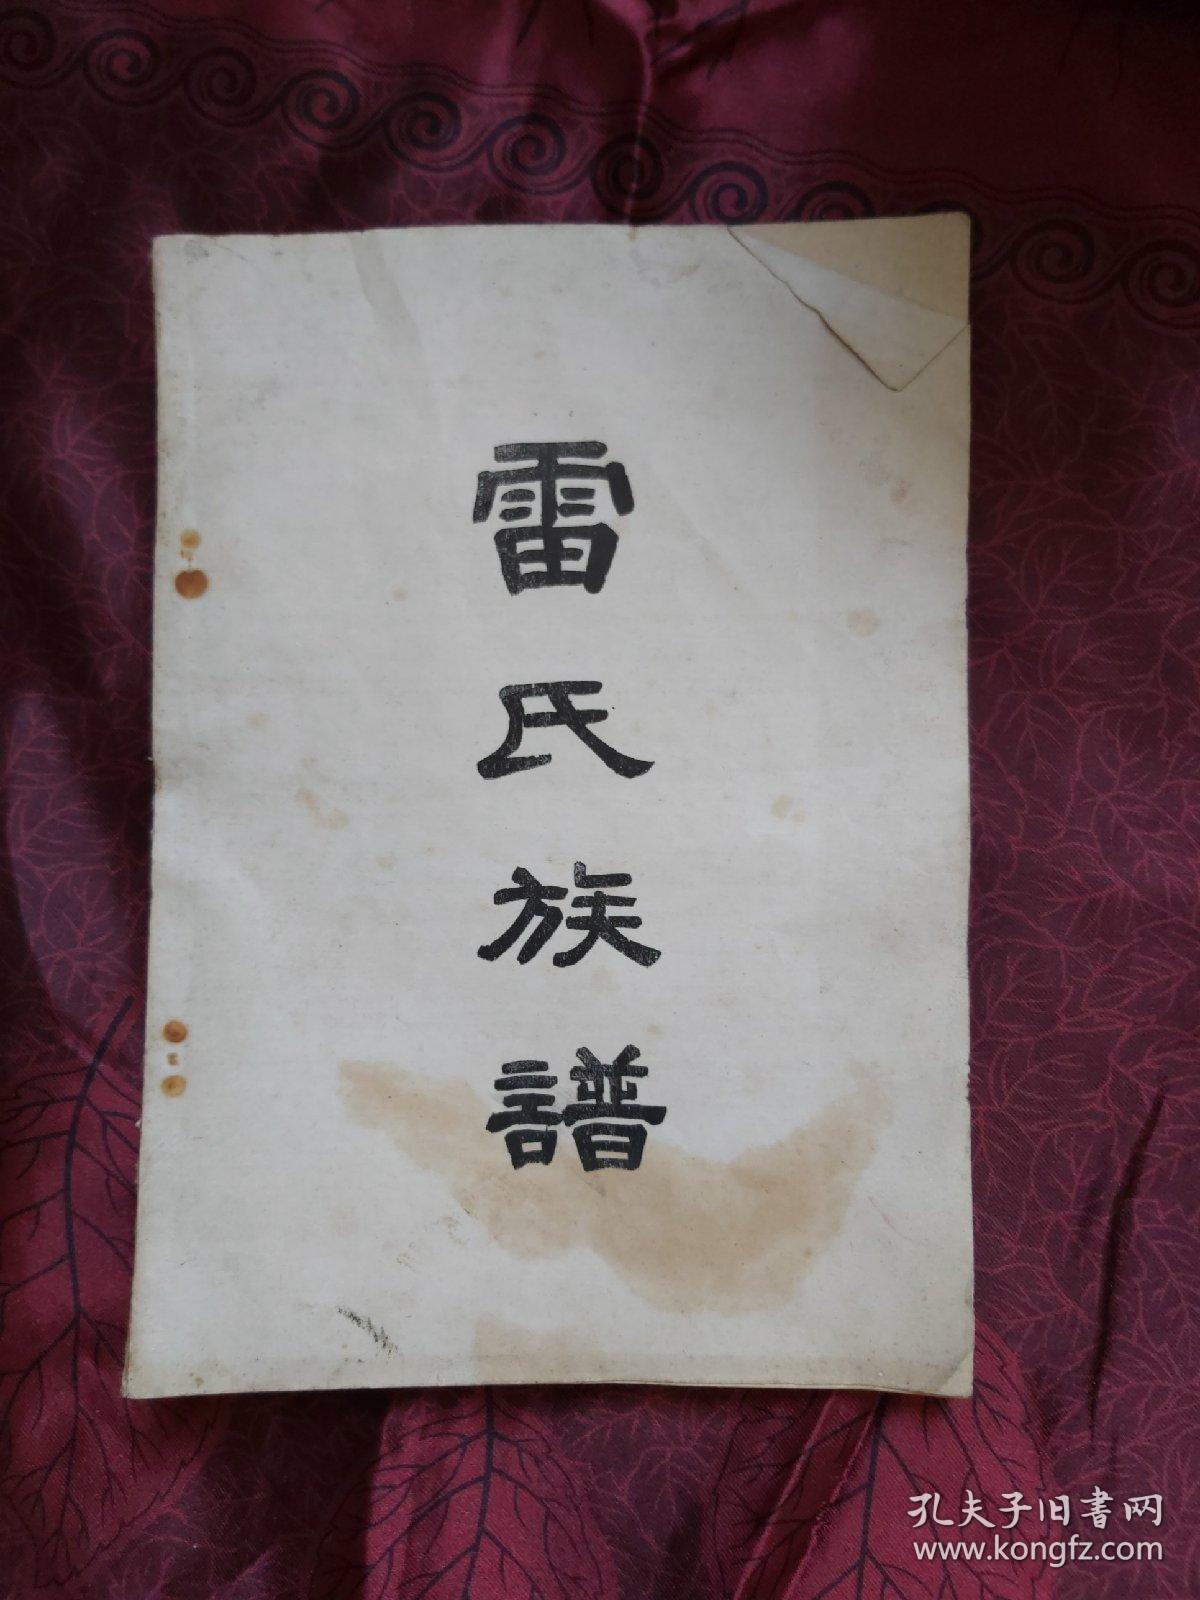 雷氏族譜
孔夫子旧書网
www.kongfz.com